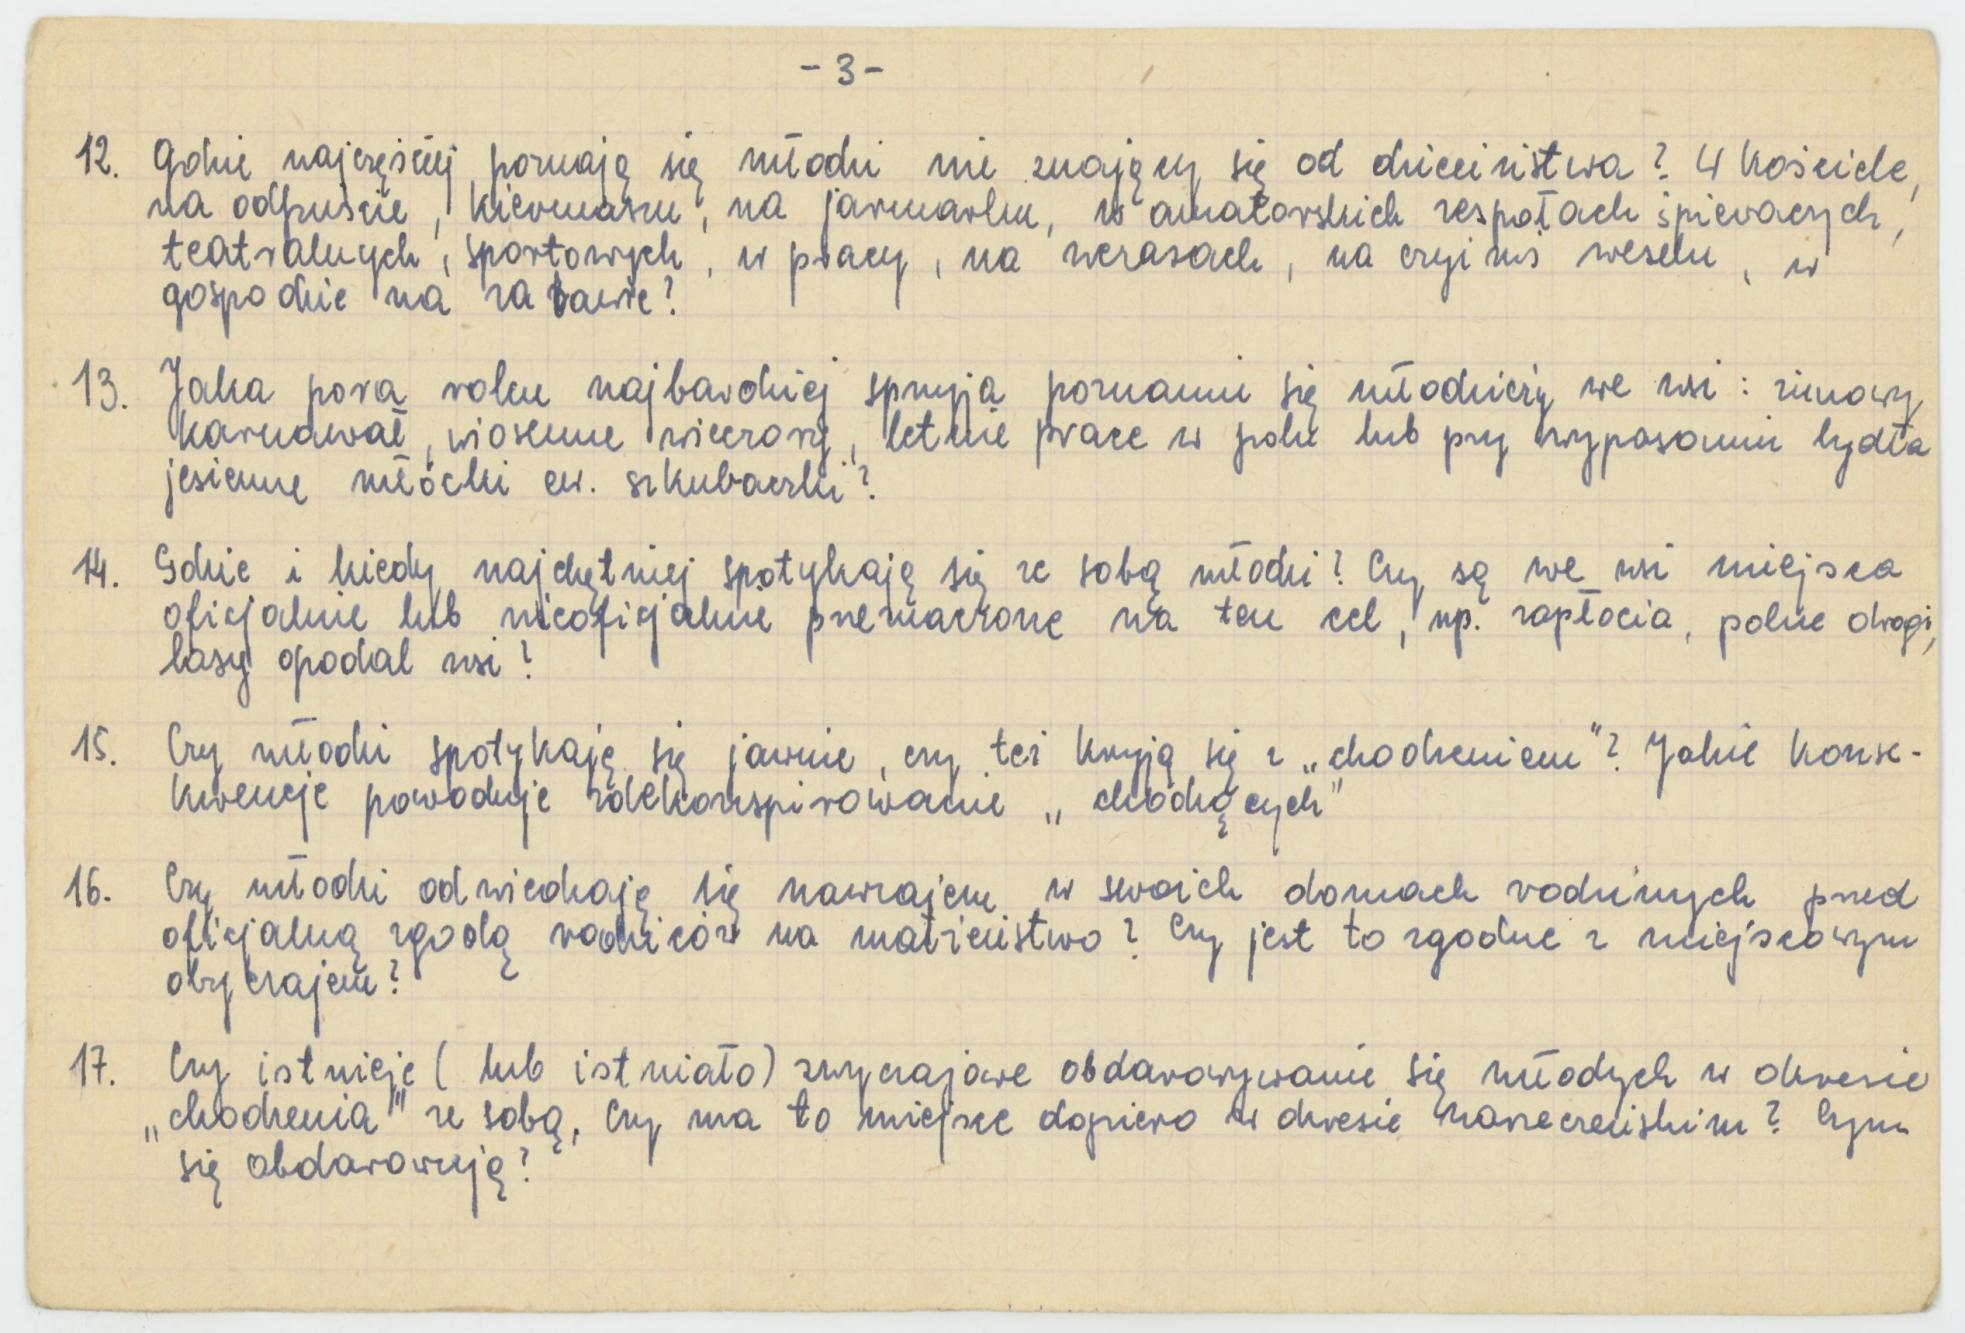 - 3 -
12. Gdzie najczęściej poznają się młodzi nie znający się od dzieciństwa? W kościele,
na odpuście, kiermaszu, na jarmarku, w amatorskich zespołach śpiewaczych,
teatralnych, sportowych, w pracy, na wczasach, na czyimś weselu, w
gospodzie na zabawie?
13. Jaka pora roku najbardziej sprzyja poznaniu się młodzieży we wsi: zimowy
karnawał, wiosenne wieczory, letnie prace w polu lub przy wypasaniu bydła
jesienne młócki ew. szkubaczki"?
14. Gdzie i kiedy najchętniej spotykają się ze sobą młodzi? Czy są we wsi miejsca
oficjalnie lub nieoficjalnie przeznaczone na ten cel, np. zapłocia, polne drogi,
lasy opodal wsi?
15. Czy młodzi spotykają się jawnie, czy też kryją się z „chodzeniem"? Jakie konse-
kwencje powoduje zdekonspirowanie „chodzących"
16. Czy młodzi odwiedzają się nawzajem w swoich domach rodzinnych przed
oficjalną zgodą rodziców na małżeństwo? Czy jest to zgodne z miejscowym
obyczajem?
17. Czy istnieje (lub istniało) zwyczajowe obdarowywanie się młodych w okresie
„chodzenia" ze sobą, czy ma to miejsce dopiero w okresie narzeczeńskim? Czym
się obdarowują?